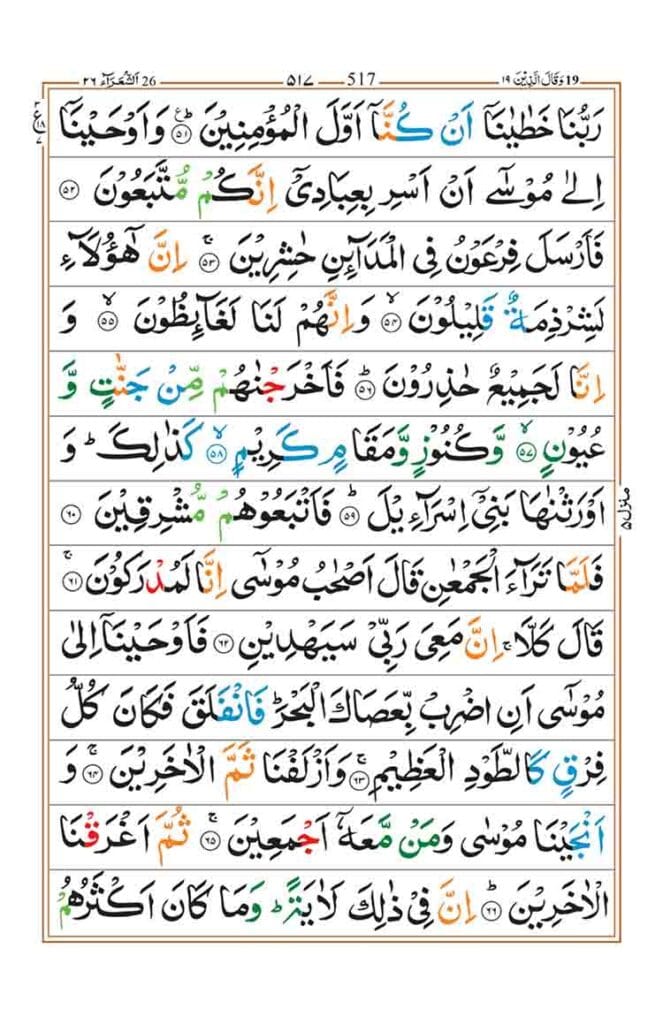 26 اَلشُّعَرَآء ٢٦ 517 ٥١٧ 19 وَقَالَ الَّذِيْنَ ١٩
رَبُّنَا خَطٰيٰنَاۤ اَنْ كُنَّاۤ اَوَّلَ الْمُؤْمِنِيْنَ ؕ۠ ۝٥١ وَ اَوْحَيْنَاۤ
اِلٰى مُوْسٰۤى اَنْ اَسْرِ بِعِبَادِيْۤ اِنَّكُمْ مُّتَّبَعُوْنَ ۝٥٢
فَاَرْسَلَ فِرْعَوْنُ فِي الْمَدَآىِٕنِ حٰشِرِيْنَ ۚ ۝٥٣ اِنَّ هٰۤؤُلَآءِ
لَشِرْذِمَةٌ قَلِيْلُوْنَ ۙ ۝٥٤ وَ اِنَّهُمْ لَنَا لَغَآىِٕظُوْنَ ۙ ۝٥٥ وَ
اِنَّا لَجَمِيْعٌ حٰذِرُوْنَ ؕ ۝٥٦ فَاَخْرَجْنٰهُمْ مِّنْ جَنّٰتٍ وَّ
عُيُوْنٍ ۙ ۝٥٧ وَّ كُنُوْزٍ وَّ مَقَامٍ كَرِيْمٍ ۙ ۝٥٨ كَذٰلِكَ ؕ وَ
اَوْرَثْنٰهَا بَنِيْۤ اِسْرَآءِيْلَ ؕ ۝٥٩ فَاَتْبَعُوْهُمْ مُّشْرِقِيْنَ ۝٦٠
فَلَمَّا تَرَآءَ الْجَمْعٰنِ قَالَ اَصْحٰبُ مُوْسٰۤى اِنَّا لَمُدْرَكُوْنَ ۚ ۝٦١
قَالَ كَلَّا ۚ اِنَّ مَعِيَ رَبِّيْ سَيَهْدِيْنِ ۝٦٢ فَاَوْحَيْنَاۤ اِلٰى
مُوْسٰۤى اَنِ اضْرِبْ بِّعَصَاكَ الْبَحْرَ ؕ فَانْفَلَقَ فَكَانَ كُلُّ
فِرْقٍ كَالطَّوْدِ الْعَظِيْمِ ۚ ۝٦٣ وَ اَزْلَفْنَا ثَمَّ الْاٰخَرِيْنَ ۚ ۝٦٤ وَ
اَنْجَيْنَا مُوْسٰى وَ مَنْ مَّعَهٗۤ اَجْمَعِيْنَ ۚ ۝٦٥ ثُمَّ اَغْرَقْنَا
الْاٰخَرِيْنَ ؕ ۝٦٦ اِنَّ فِيْ ذٰلِكَ لَاٰيَةً ؕ وَ مَا كَانَ اَكْثَرُهُمْ
منزل ٥